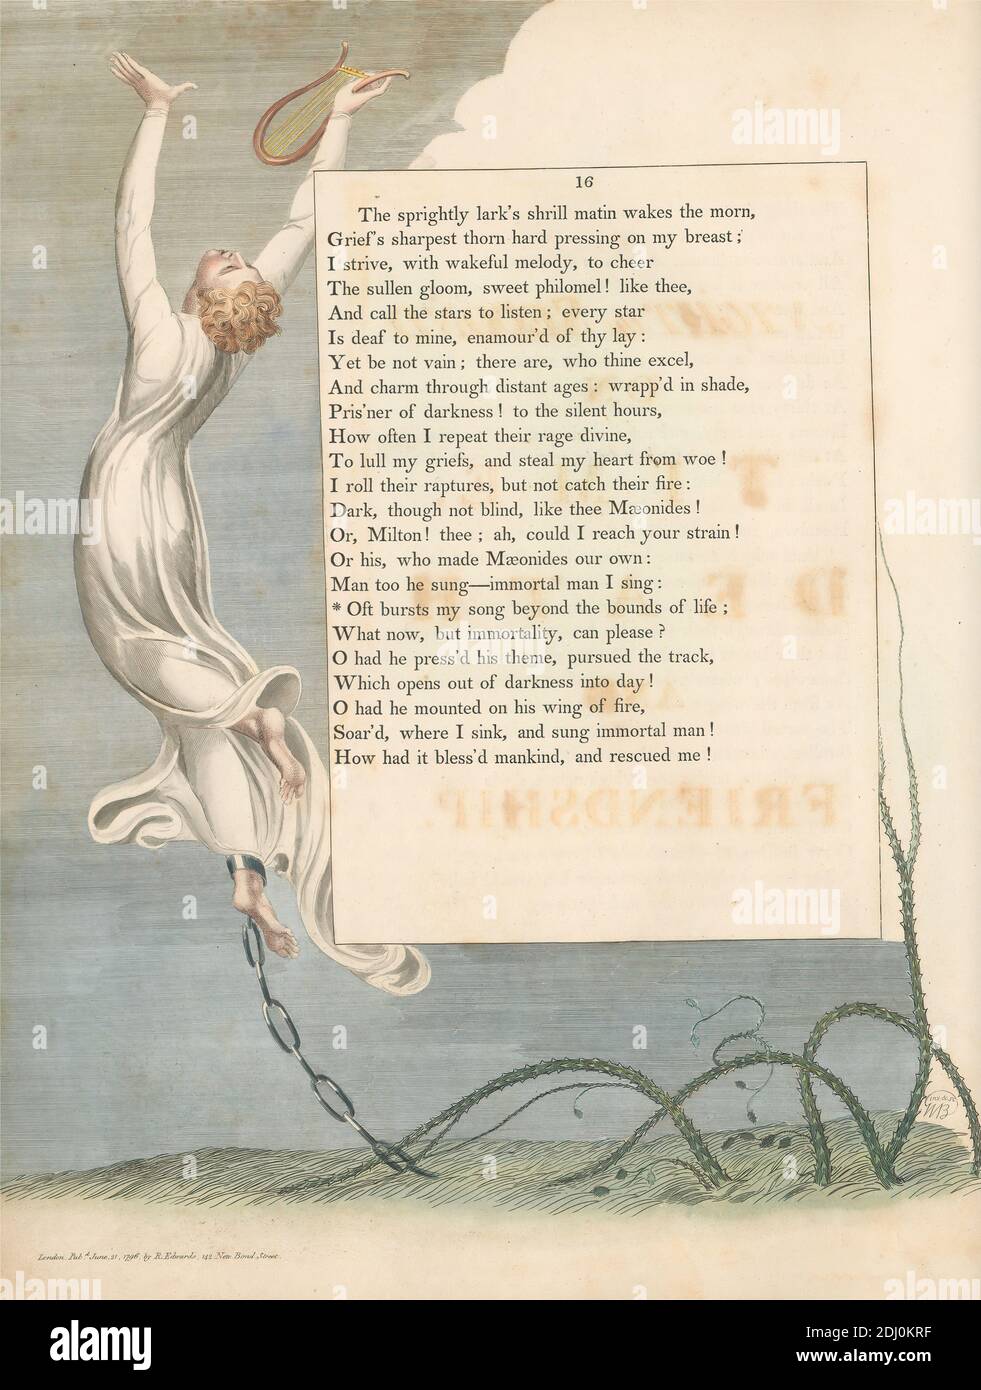 16
The sprightly lark's shrill matin wakes the morn,
Grief's sharpest thorn hard pressing on my breast;
I strive, with wakeful melody, to cheer
The sullen gloom, sweet philomel! like thee,
And call the stars to listen; every star
Is deaf to mine, enamour'd of thy lay:
Yet be not vain; there are, who thine excel,
And charm through distant ages: wrapp'd in shade,
Pris'ner of darkness! to the silent hours,
How often I repeat their rage divine,
To lull my griefs, and steal my heart from woe!
I roll their raptures, but not catch their fire:
Dark, though not blind, like thee Mæonides!
Or, Milton! thee; ah, could I reach your strain!
Or his, who made Mæonides our own:
Man too he sung—immortal man I sing:
* Oft bursts my song beyond the bounds of life;
What now, but immortality, can please?
O had he press'd his theme, pursued the track,
Which opens out of darkness into day!
O had he mounted on his wing of fire,
Soar'd, where I sink, and sung immortal man!
How had it bless'd mankind, and rescued me!
FRIENDSHIP.
inv & sc
WB
London. Pub.d June, 21, 1796, by R. Edwards, 142 New Bond Street.
alamy
alamy
Image ID: 2DJ0KRF
www.alamy.com